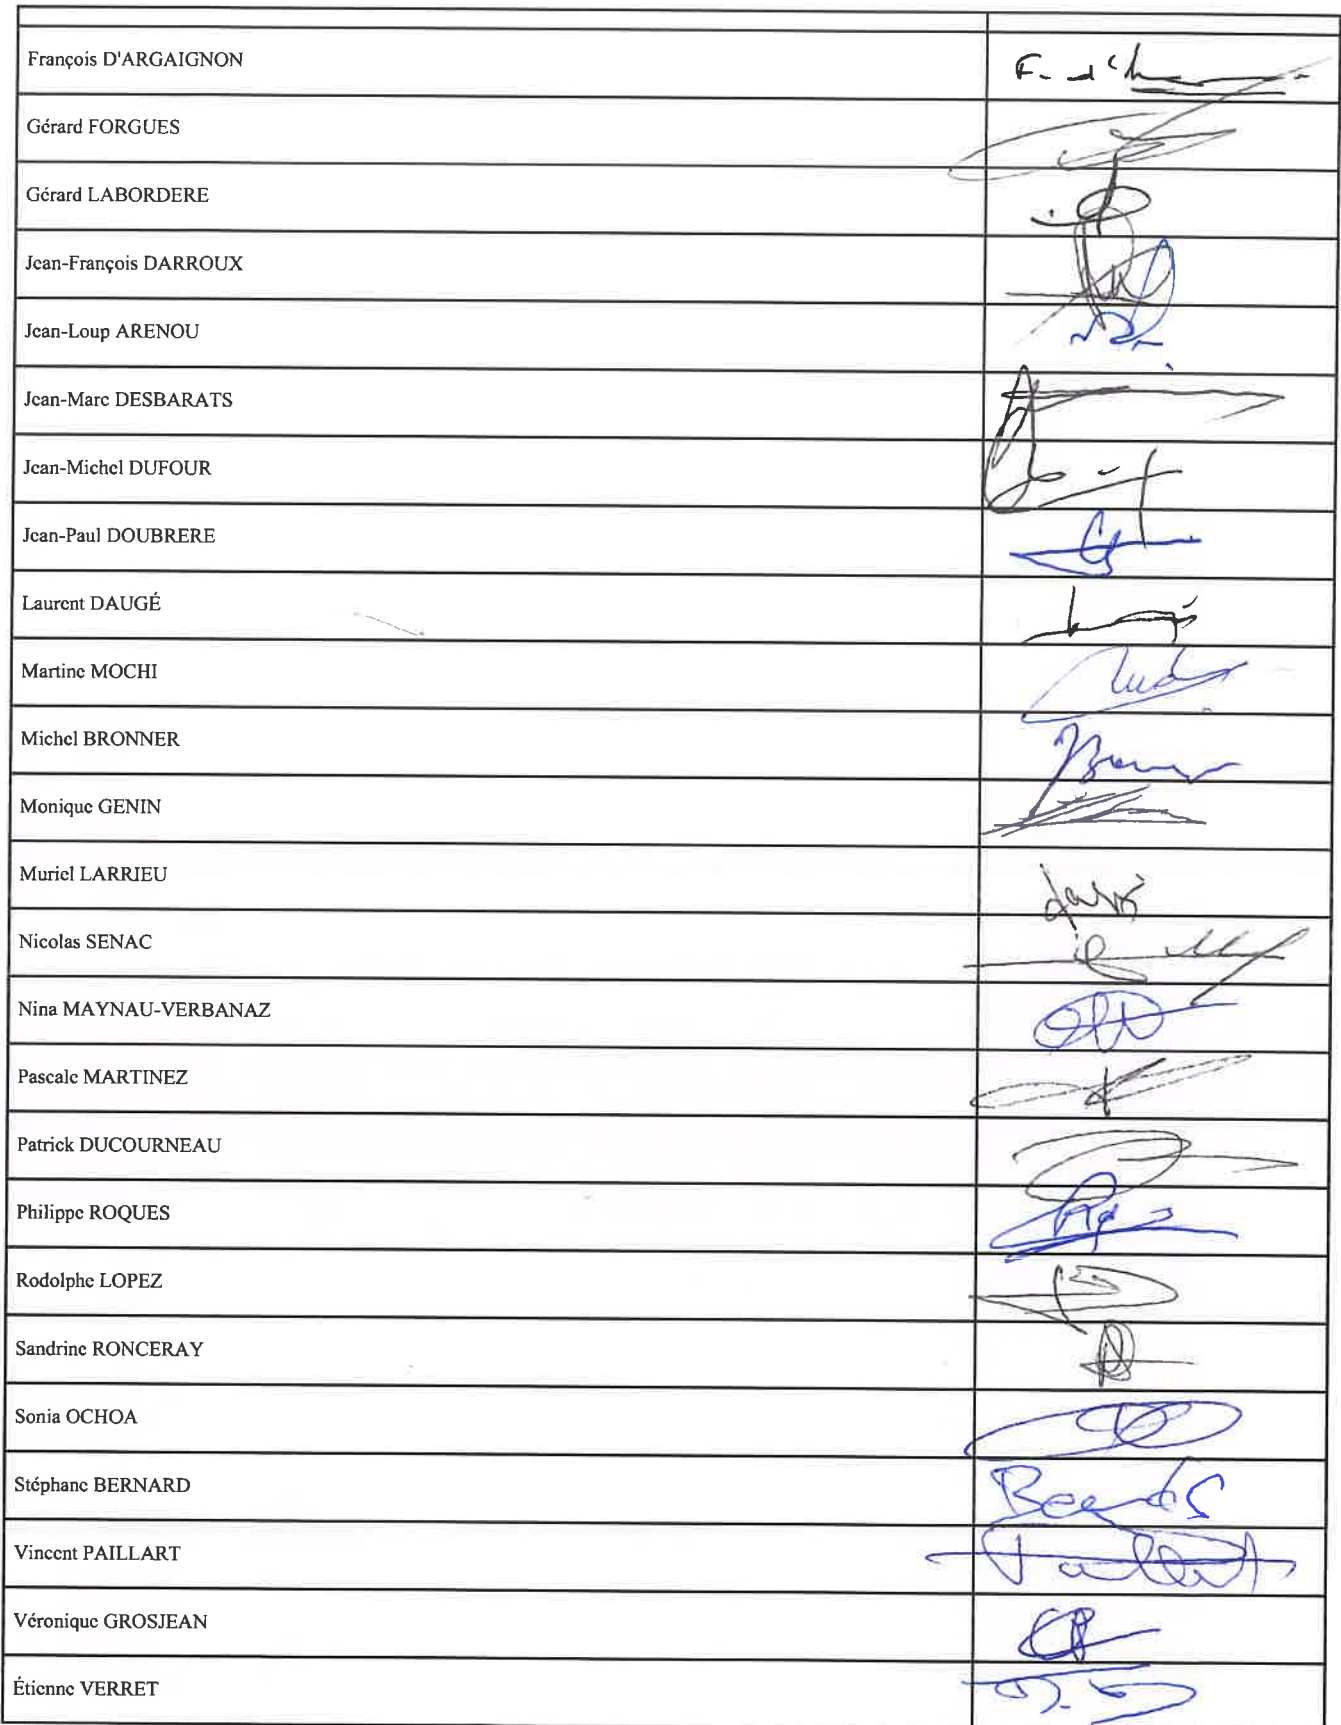 François D'ARGAIGNON
Gérard FORGUES
Gérard LABORDERE
Jean-François DARROUX
Jean-Loup ARENOU
Jean-Marc DESBARATS
Jean-Michel DUFOUR
Jean-Paul DOUBRERE
Laurent DAUGÉ
Martine MOCHI
Michel BRONNER
Monique GENIN
Muriel LARRIEU
Nicolas SENAC
Nina MAYNAU-VERBANAZ
Pascale MARTINEZ
Patrick DUCOURNEAU
Philippe ROQUES
Rodolphe LOPEZ
Sandrine RONCERAY
Sonia OCHOA
Stéphane BERNARD
Vincent PAILLART
Véronique GROSJEAN
Étienne VERRET